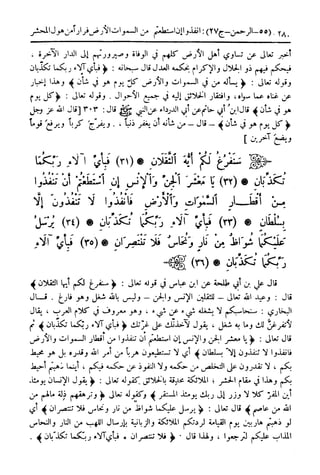 ٢٨٠ (٥٥-الرحمن-ج٢٧): انفذوا إن استطعتم من السموات والأرض فراراً من هول المحشر
أخبر تعالى عن تساوي أهل الأرض كلهم في الوفاة وصيرورتهم إلى الدار الآخرة ،
فيحكم فيهم ذو الجلال والإكرام بحكمه العدل قال سبحانه : ﴿ فبأي آلاء ربكما تكذبان
وقوله تعالى : ﴿ يسأله من في السموات والأرض كل يوم هو في شأن ﴾ وهذا إخبار
عن غناه عما سواه، وافتقار الخلائق إليه في جميع الأحوال . وقوله تعالى : ﴿ كل يوم
هو في شأن ﴾ قال ابن أبي حاتم عن أبي الدرداء عن النبي ﷺ قال : ٣٠٣ [ قال الله عز وجل
﴿ كل يوم هو في شأن ﴾ - قال - من شأنه أن يغفر ذنباً . . ويفرّج كرباً ويرفع قوماً
ويضع آخرين ]
سَنَفْرُغُ لَكُمْ أَيُّهَ الثَّقَلَانِ (٣١) فَبِأَيِّ آلَاءِ رَبِّكُمَا
تُكَذِّبَانِ (٣٢) يَا مَعْشَرَ الْجِنِّ وَالْإِنْسِ إِنِ اسْتَطَعْتُمْ أَنْ تَنْفُذُوا
مِنْ أَقْطَارِ السَّمَوَاتِ وَالْأَرْضِ فَانْفُذُوا لَا تَنْفُذُونَ إِلَّا
بِسُلْطَانٍ (٣٣) فَبِأَيِّ آلَاءِ رَبِّكُمَا تُكَذِّبَانِ (٣٤) يُرْسَلُ
عَلَيْكُمَا شُوَاظٌ مِنْ نَارٍ وَنُحَاسٌ فَلَا تَنْتَصِرَانِ (٣٥) فَبِأَيِّ آلَاءِ
رَبِّكُمَا تُكَذِّبَانِ (٣٦)
قال علي بن أبي طلحة عن ابن عباس في قوله تعالى : ﴿ سنفرغ لكم أيها الثقلان ﴾
قال : وعيد الله تعالى - للثقلين الإنس والجن - وليس بالله شغل وهو فارغ . قــال
البخاري : سنحاسبكم لا يشغله شيء عن شيء ، وهو معروف في كلام العرب ، يقال
لأتفرغنّ لك وما به شغل ، يقول لآخذنّك على غرّتك ﴿ فبأي آلاء ربكما تكذبان ﴾ ثم
قال تعالى : ﴿ يا معشر الجن والإنس إن استطعتم أن تنفذوا من أقطار السموات والأرض
فانفذوا لا تنفذون إلا بسلطان ﴾ أي لا تستطيعون هرباً من أمر الله وقدره بل هو محيط
بكم ، لا تقدرون على التخلص من حكمه ولا النفوذ عن حكمه فيكم ، أينما ذهبتم أحيط
بكم وهذا في مقام الحشر ؛ الملائكة محدقة بالخلائق كقوله تعالى : ﴿ يقول الإنسان يومئذ
أين المفر؟ كلا لا وزر إلى ربك يومئذ المستقر ﴾ وكقوله تعالى ﴿ وترهقهم ذلة مالهم من
الله من عاصم ﴾ قال تعالى : ﴿ يرسل عليكما شواظ من نار ونحاس فلا تنتصران ﴾ أي
لو ذهبتم هاربين يوم القيامة لردتكم الملائكة والزبانية بإرسال اللهب من النار والنحاس
المذاب عليكم لترجعوا ، ولهذا قال : ﴿ فلا تنتصران ● فبأي آلاء ربكما تكذبان ﴾ .